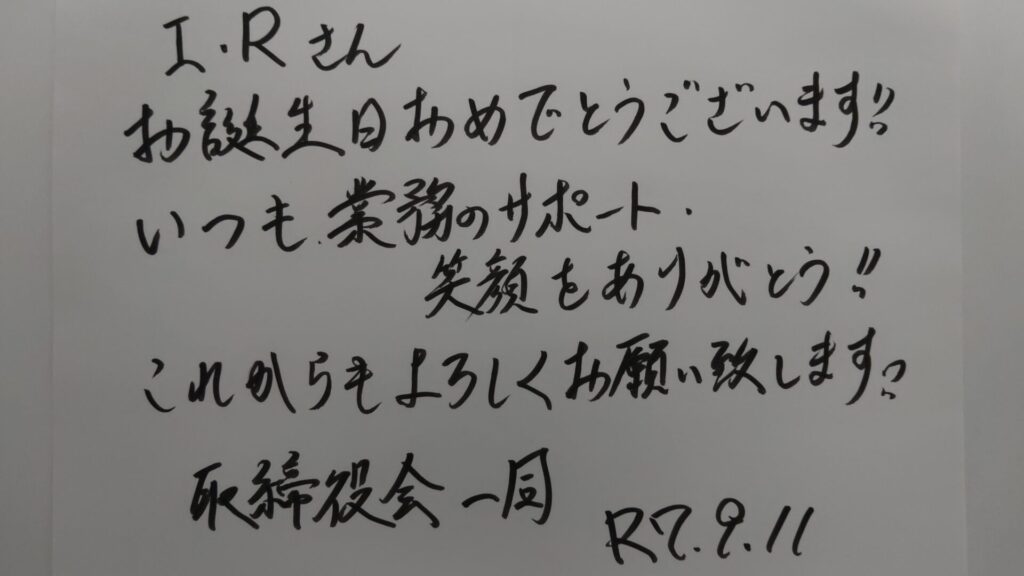 I・Rさん
お誕生日おめでとうございます!!
いつも業務のサポート・
笑顔をありがとう!!
これからもよろしくお願い致します!
取締役会一同
R7.9.11